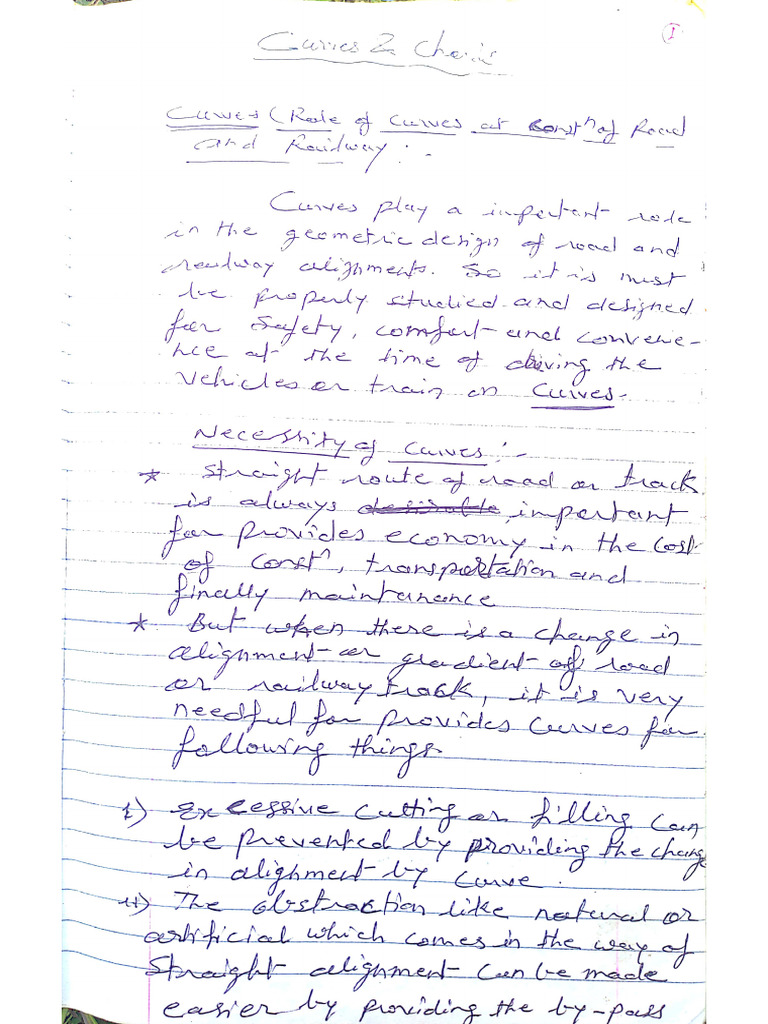 I
Curves &
Curves (Role of Curves at Constⁿ of Road
and Railway:-
Curves play a important role
in the geometric design of road and
railway alignments. So it is must
be properly studied and designed
for safety, comfort and convenie-
nce at the time of driving the
vehicles or train on Curves.
Necessity of Curves:-
* Straight route of road or track
is always important
for provides economy in the cost
of constⁿ, transportation and
finally maintanance
* But when there is a change in
alignment or gradient of road
or railway track, it is very
needful for provides Curves for
following things.
i) Excessive cutting or filling can
be prevented by providing the change
in alignment by curve.
ii) The obstraction like natural or
artificial which comes in the way of
straight alignment can be made
easier by providing the by-pass